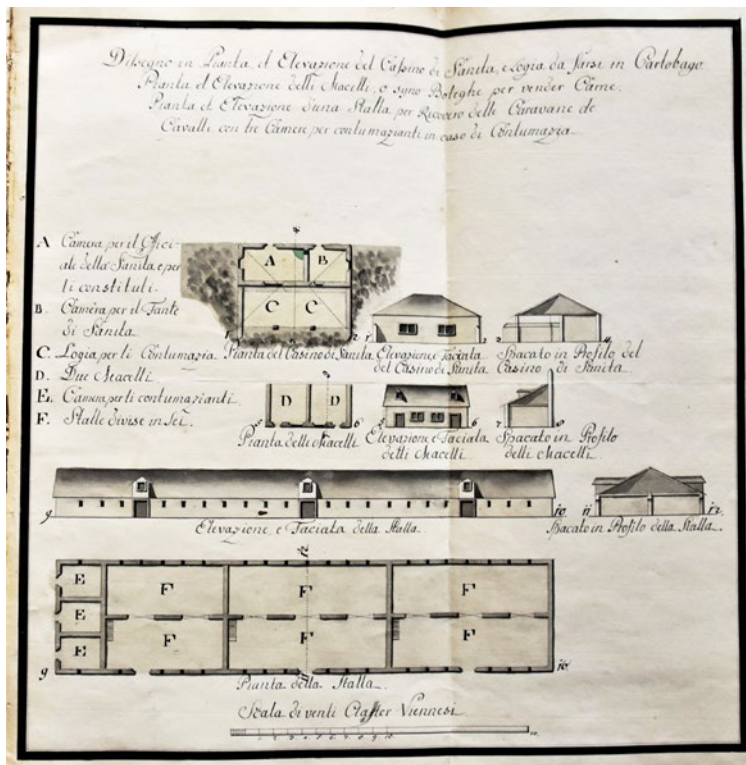 Dissegno in Pianta, et Elevazione del Cassino di Sanita, e Logia da farsi in Carlobago.
Pianta et Elevazione delli Macelli, o syno Boteghe per vender Carne.
Pianta et Elevazione d'una Stalla per Recovero delle Caravane de
Cavalli, con tre Camere per contumazianti in caso di Contumazia.
A Camera per il Offici-
ale della Sanita e per
li constituti.
B. Camera per il Fante
di Sanita.
C. Logia per li Contumazia.
D. Due Macelli.
E. Camera per li contumazianti.
F. Stalle divise in Sei.
A B
C C
1 2
Pianta del Casino di Sanita.
1 2
Elevazione, e Faciata
del Casino di Sanita
3 4
Spacato in Profilo del
Casino di Sanita.
D D
5 6
Pianta delli Macelli
5 6
Elevazione, e Faciata
delli Macelli
7 8
Spacato in Profilo
delli Macelli.
9 10
Elevazione, e Faciata della Stalla.
11 12
Spacato in Profilo della Stalla.
12
E F F F
E
E F F F
9 11 10
Pianta della Stalla.
Scala di venti Clafter Viennesi
1 2 3 4 5 6 7 8 9 10 20